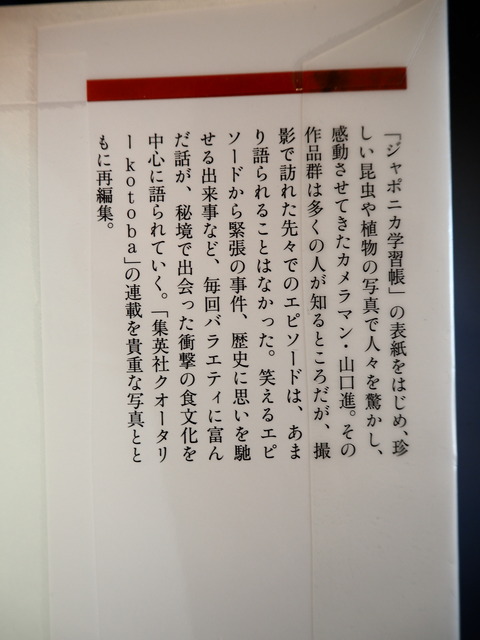 「ジャポニカ学習帳」の表紙をはじめ、珍
しい昆虫や植物の写真で人々を驚かし、
感動させてきたカメラマン・山口進。その
作品群は多くの人が知るところだが、撮
影で訪れた先々でのエピソードは、あま
り語られることはなかった。笑えるエピ
ソードから緊張の事件、歴史に思いを馳
せる出来事など、毎回バラエティに富ん
だ話が、秘境で出会った衝撃の食文化を
中心に語られていく。「集英社クオータリ
ーkotoba」の連載を貴重な写真とと
もに再編集。